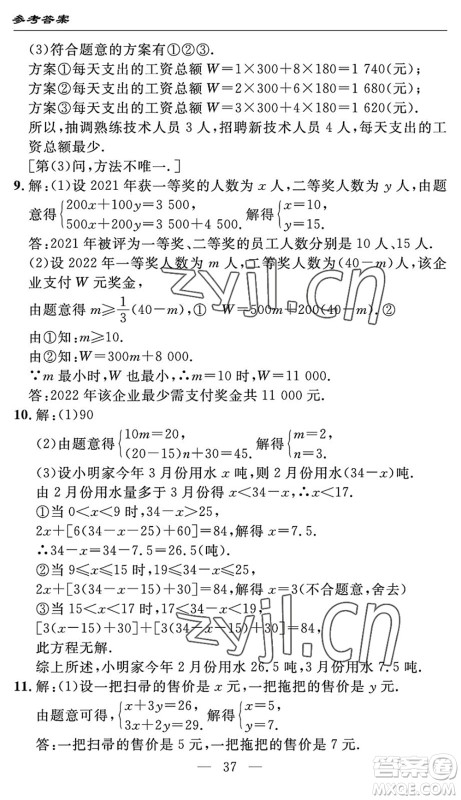 参考答案
(3)符合题意的方案有①②③.
方案①每天支出的工资总额W=1×300+8×180=1 740(元);
方案②每天支出的工资总额W=2×300+6×180=1 680(元);
方案③每天支出的工资总额W=3×300+4×180=1 620(元).
所以,抽调熟练技术人员3人,招聘新技术人员4人,每天支出的工
资总额最少.
[第(3)问,方法不唯一.]
9. 解:(1)设2021年获一等奖的人数为x人,二等奖人数为y人,由题
意得{200x+100y=3 500, 500x+200y=3 500+4 500. 解得{x=10, y=15.
答:2021年被评为一等奖、二等奖的员工人数分别是10人、15人.
(2)设2022年一等奖人数为m人,二等奖人数为(40-m)人,该企
业支付W元奖金,
由题意得m≥1/3(40-m),① W=500m+200(40-m).②
由①知:m≥10.
由②知:W=300m+8 000.
∵m最小时,W也最小,∴当m=10时,W=11 000.
答:2022年该企业最少需支付奖金共11 000元.
10. 解:(1)90
(2)由题意得{10m=20, (20-15)n+30=45. 解得{m=2, n=3.
(3)设小明家今年3月份用水x吨,则2月份用水(34-x)吨.
由2月份用水量多于3月份得x<34-x,解得x<17.
①当0<x<9时,34-x>25.
2x+[6(34-x-25)+60]=84,解得x=7.5.
∴34-x=34-7.5=26.5(吨).
②当9≤x≤15时,19≤34-x≤25.
2x+[3(34-x-15)+30]=84,解得x=3(不合题意,舍去)
③当15<x<17时,17<34-x<19.
[3(x-15)+30]+[3(34-x-15)+30]=84,
此方程无解.
综上所述,小明家今年2月份用水26.5吨,3月份用水7.5吨.
11. 解:(1)设一把扫帚的售价是x元,一把拖把的售价是y元.
由题意可得,{x+3y=26, 3x+2y=29. 解得{x=5, y=7.
答:一把扫帚的售价是5元,一把拖把的售价是7元.
37
zyjl.cn
zyjl.cn
答案圈
MXQE.COM